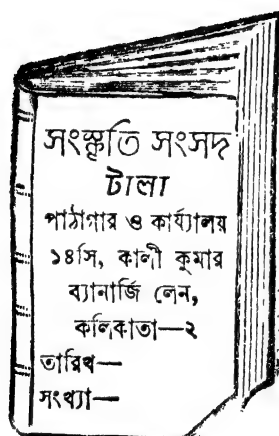 সংস্কৃতি সংসদ
টালা
পাঠাগার ও কার্য্যালয়
১৪সি, কালী কুমার
ব্যানার্জি লেন,
কলিকাতা—২
তারিখ—
সংখ্যা—